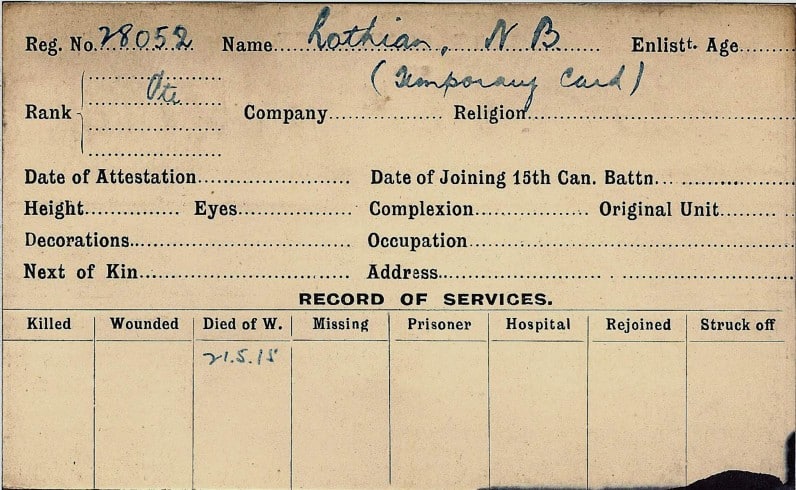 Reg. No. 28052 Name Lothian, N B Enlistt. Age
(Temporary Card)
Pte
Rank Company Religion
Date of Attestation Date of Joining 15th Can. Battn.
Height Eyes Complexion Original Unit
Decorations Occupation
Next of Kin Address
RECORD OF SERVICES.
Killed Wounded Died of W. Missing Prisoner Hospital Rejoined Struck off
21.5.15